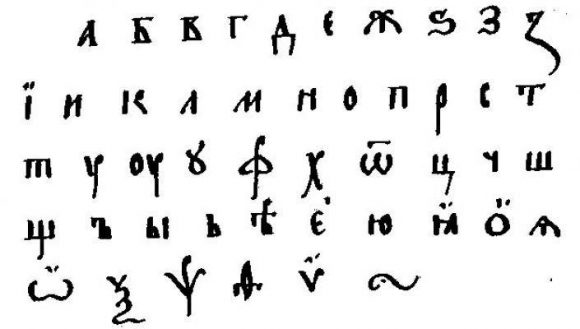 а б в г д є ж ѕ з ꙁ
ї и к л м н о п р с т
т у оу ꙋ ф х ѿ ц ч ш
щ ъ ы ь ѣ є҆ ю ꙗ̈ ӧ ѧ
ѡ̈ ѯ ѱ ѳ ѵ̈ ~